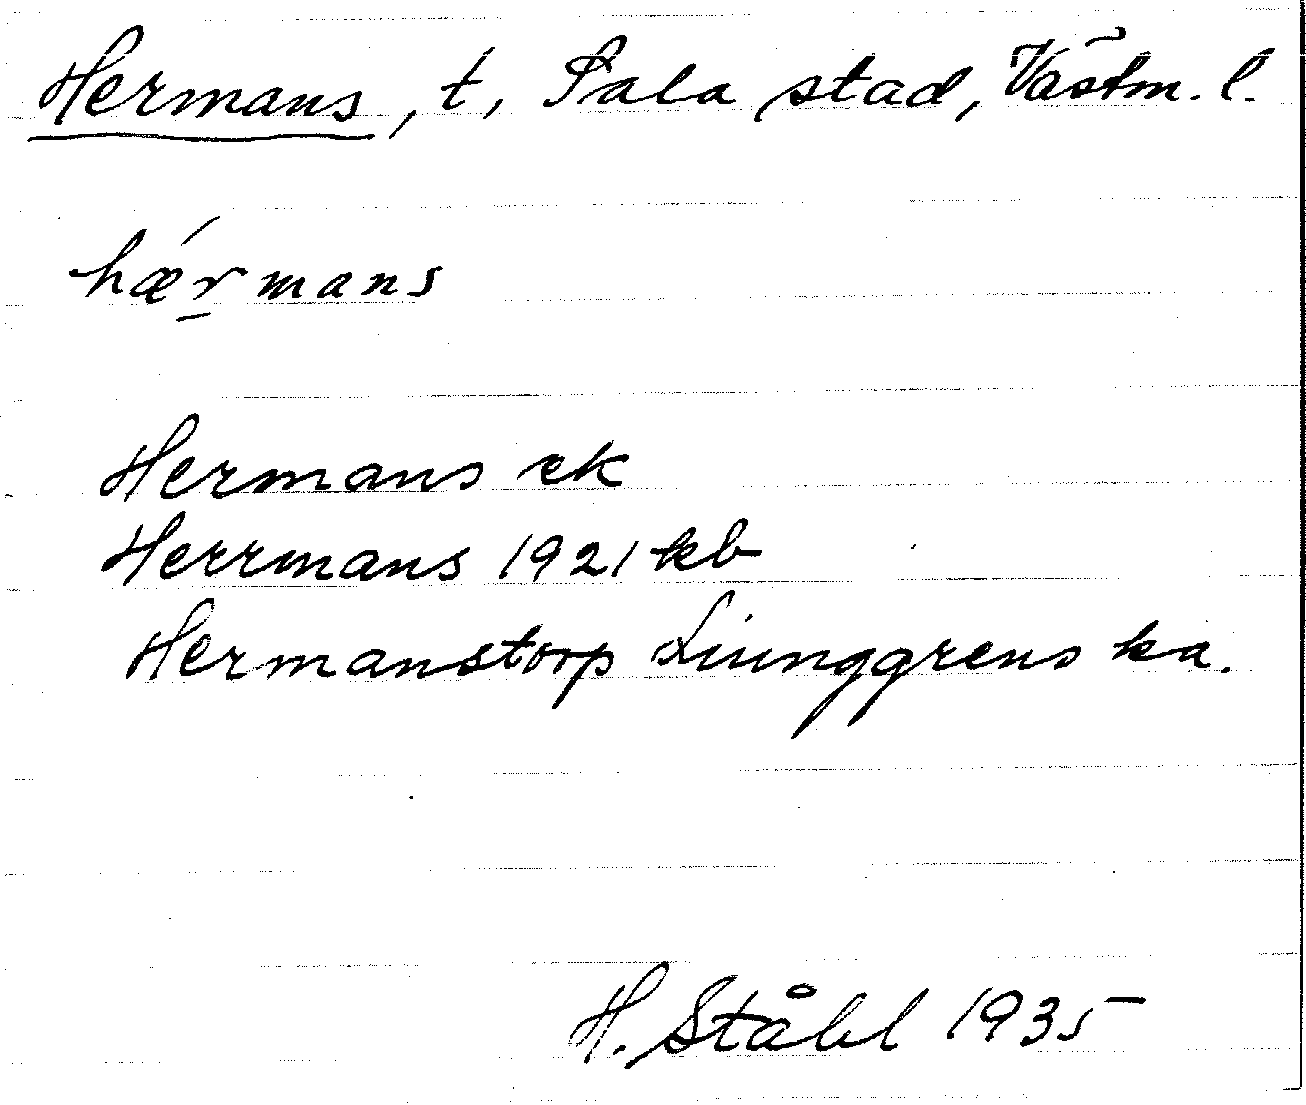 Hermans, t, Sala stad, Västm. l.
hǽr̲mans
Hermans ek
Herrmans 1921 kb
Hermanstorp Liunggrens ka.
H. Ståhl 1935